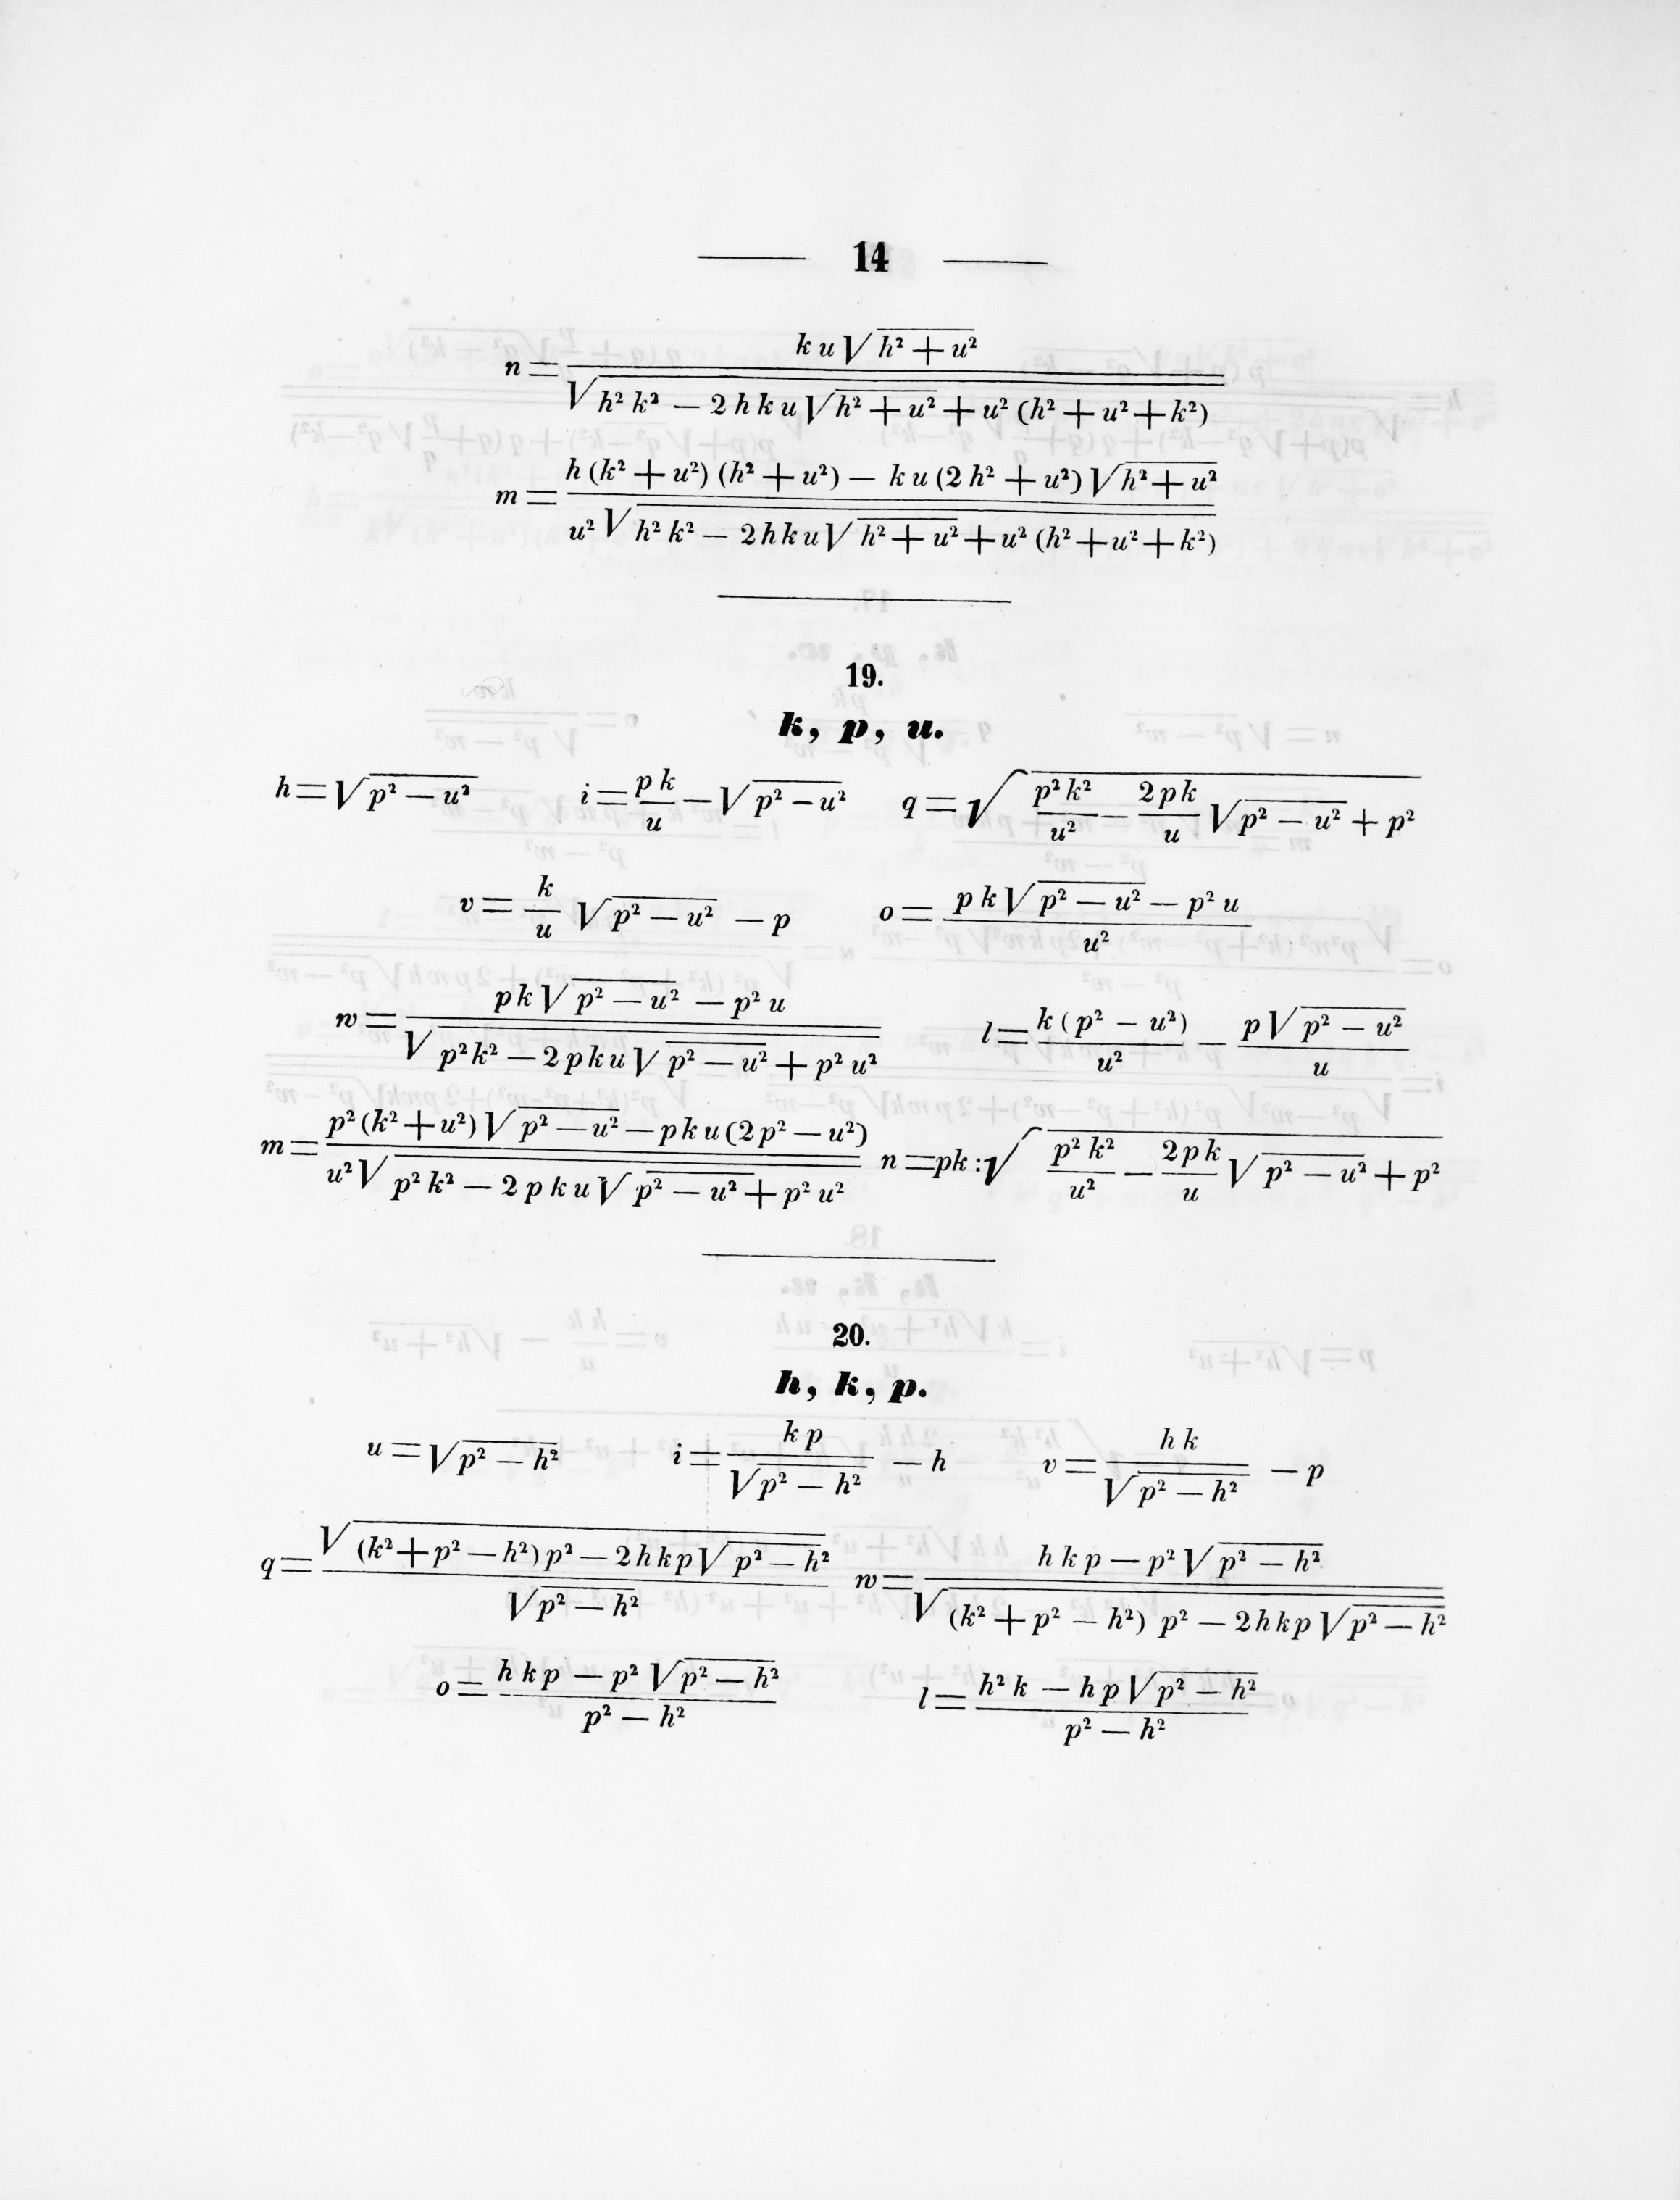 14
n = \frac{k u \sqrt{h² + u²}}{\sqrt{h² k² − 2 h k u \sqrt{h² + u²} + u² (h² + u² + k²)}}
m = \frac{h (k² + u²) (h² + u²) − k u (2 h² + u²) \sqrt{h² + u²}}{u² \sqrt{h² k² − 2 h k u \sqrt{h² + u²} + u² (h² + u² + k²)}}
19.
k, p, u.
h = \sqrt{p² − u²} i = \frac{p k}{u} − \sqrt{p² − u²} q = \sqrt{\frac{p² k²}{u²} − \frac{2 p k}{u} \sqrt{p² − u²} + p²}
v = \frac{k}{u} \sqrt{p² − u²} − p o = \frac{p k \sqrt{p² − u²} − p² u}{u²}
w = \frac{p k \sqrt{p² − u²} − p² u}{\sqrt{p² k² − 2 p k u \sqrt{p² − u²} + p² u²}} l = \frac{k (p² − u²)}{u²} − \frac{p \sqrt{p² − u²}}{u}
m = \frac{p² (k² + u²) \sqrt{p² − u²} − p k u (2 p² − u²)}{u² \sqrt{p² k² − 2 p k u \sqrt{p² − u²} + p² u²}} n = pk : \sqrt{\frac{p² k²}{u²} − \frac{2 p k}{u} \sqrt{p² − u²} + p²}
20.
h, k, p.
u = \sqrt{p² − h²} i = \frac{k p}{\sqrt{p² − h²}} − h v = \frac{h k}{\sqrt{p² − h²}} − p
q = \frac{\sqrt{(k² + p² − h²) p² − 2 h k p \sqrt{p² − h²}}}{\sqrt{p² − h²}} w = \frac{h k p − p² \sqrt{p² − h²}}{\sqrt{(k² + p² − h²) p² − 2 h k p \sqrt{p² − h²}}}
o = \frac{h k p − p² \sqrt{p² − h²}}{p² − h²} l = \frac{h² k − h p \sqrt{p² − h²}}{p² − h²}